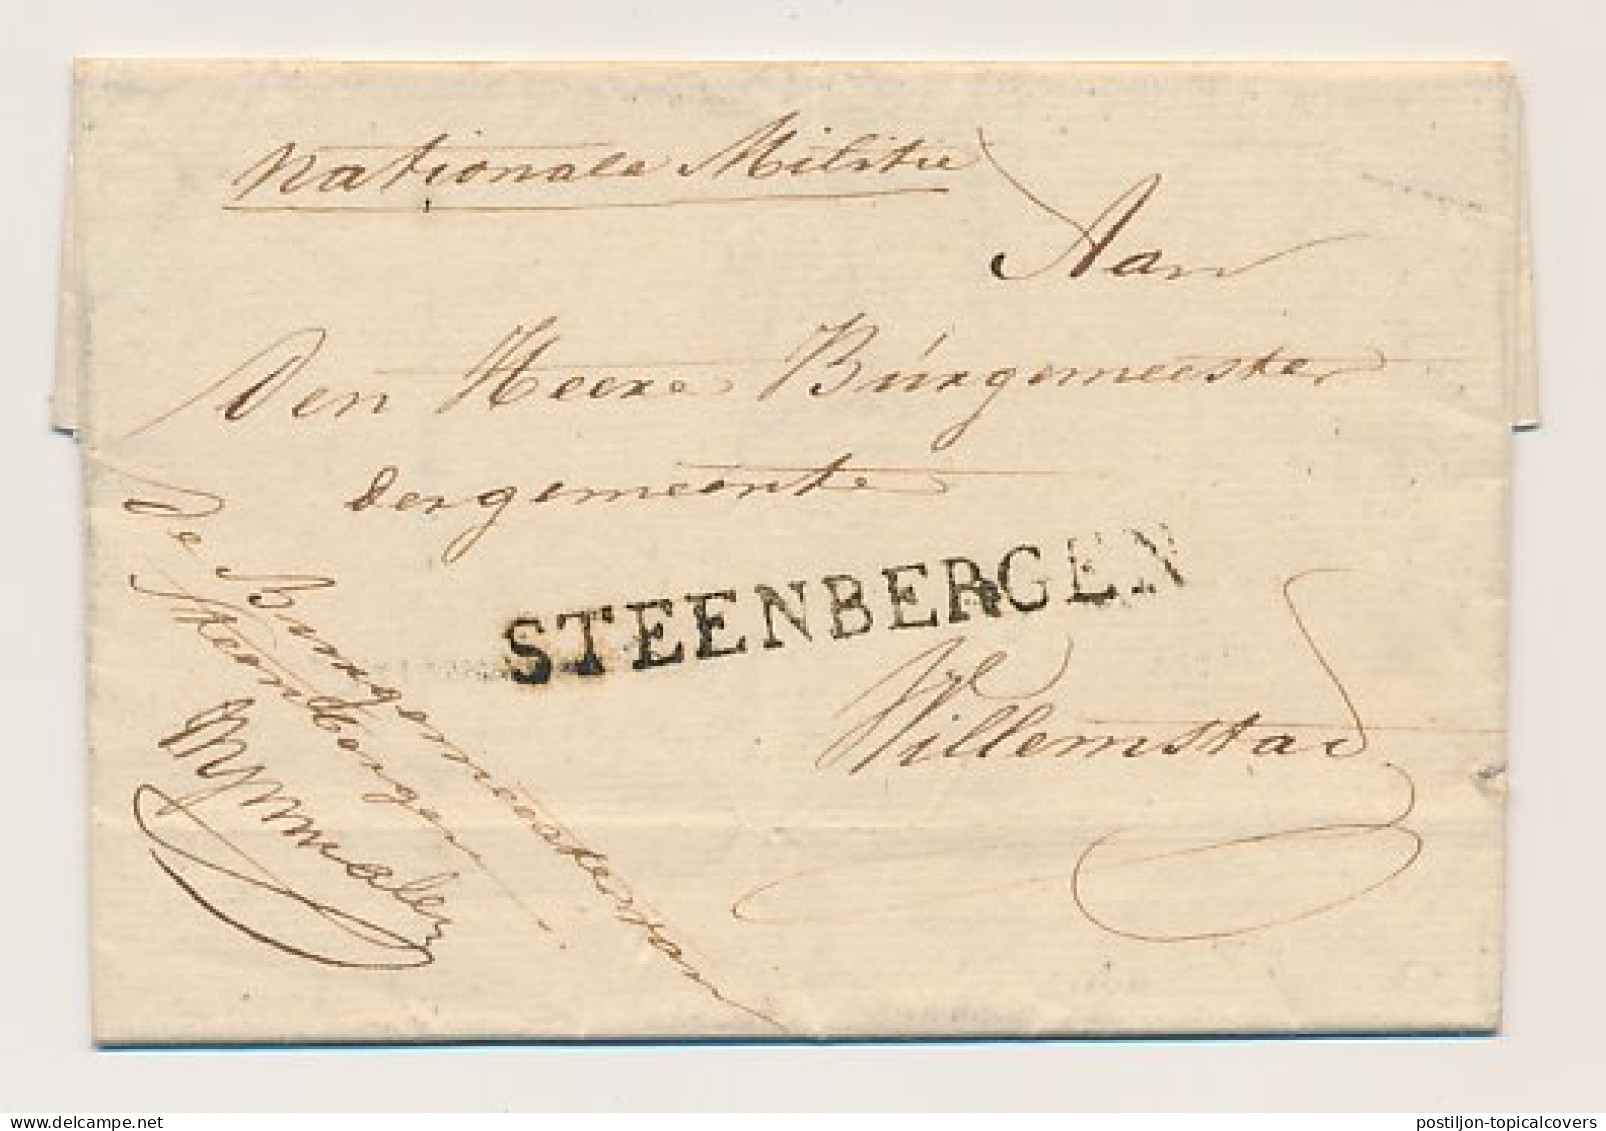 Nationale Militie
Aan
Den Heere Burgemeester
der gemeente
STEENBERGEN
Willemstad
De Burgemeester van
Steenbergen
postiljon-topicalcovers